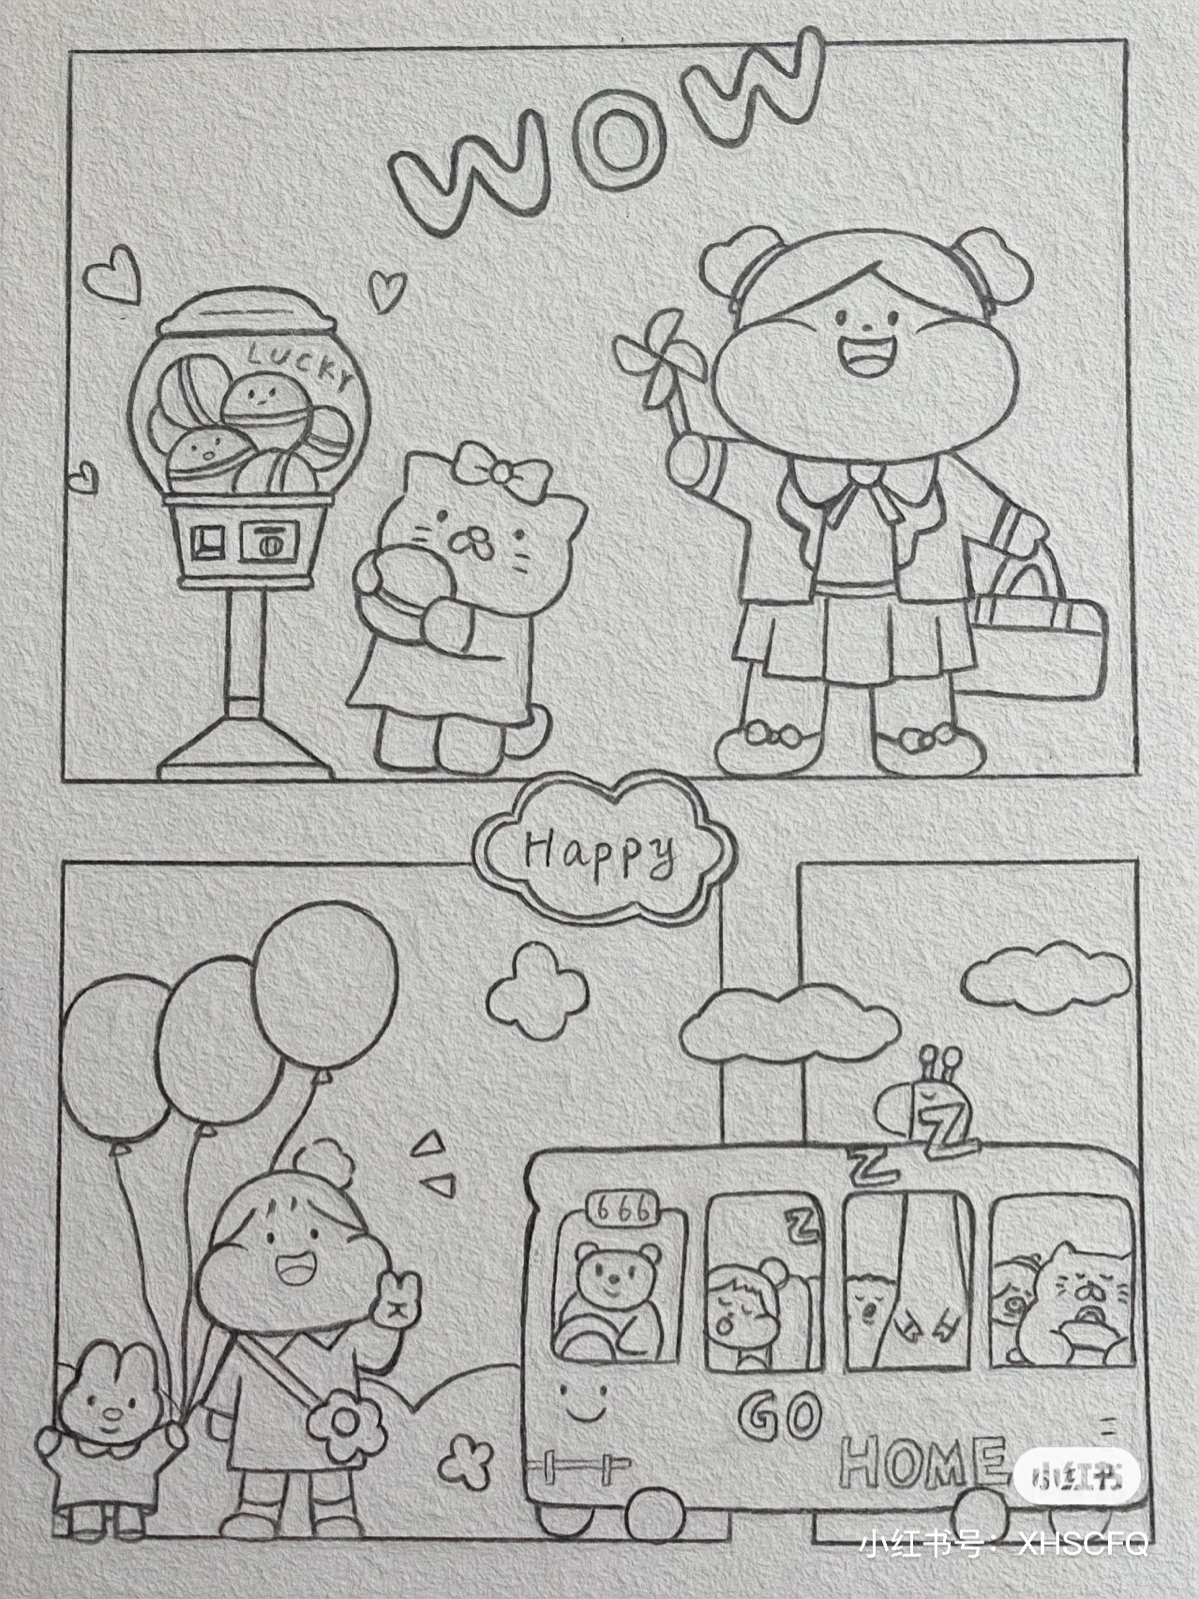 WOW
LUCKY
Happy
Z
Z
666
Z
GO
HOME
小红书
小红书号：XHSCFQ